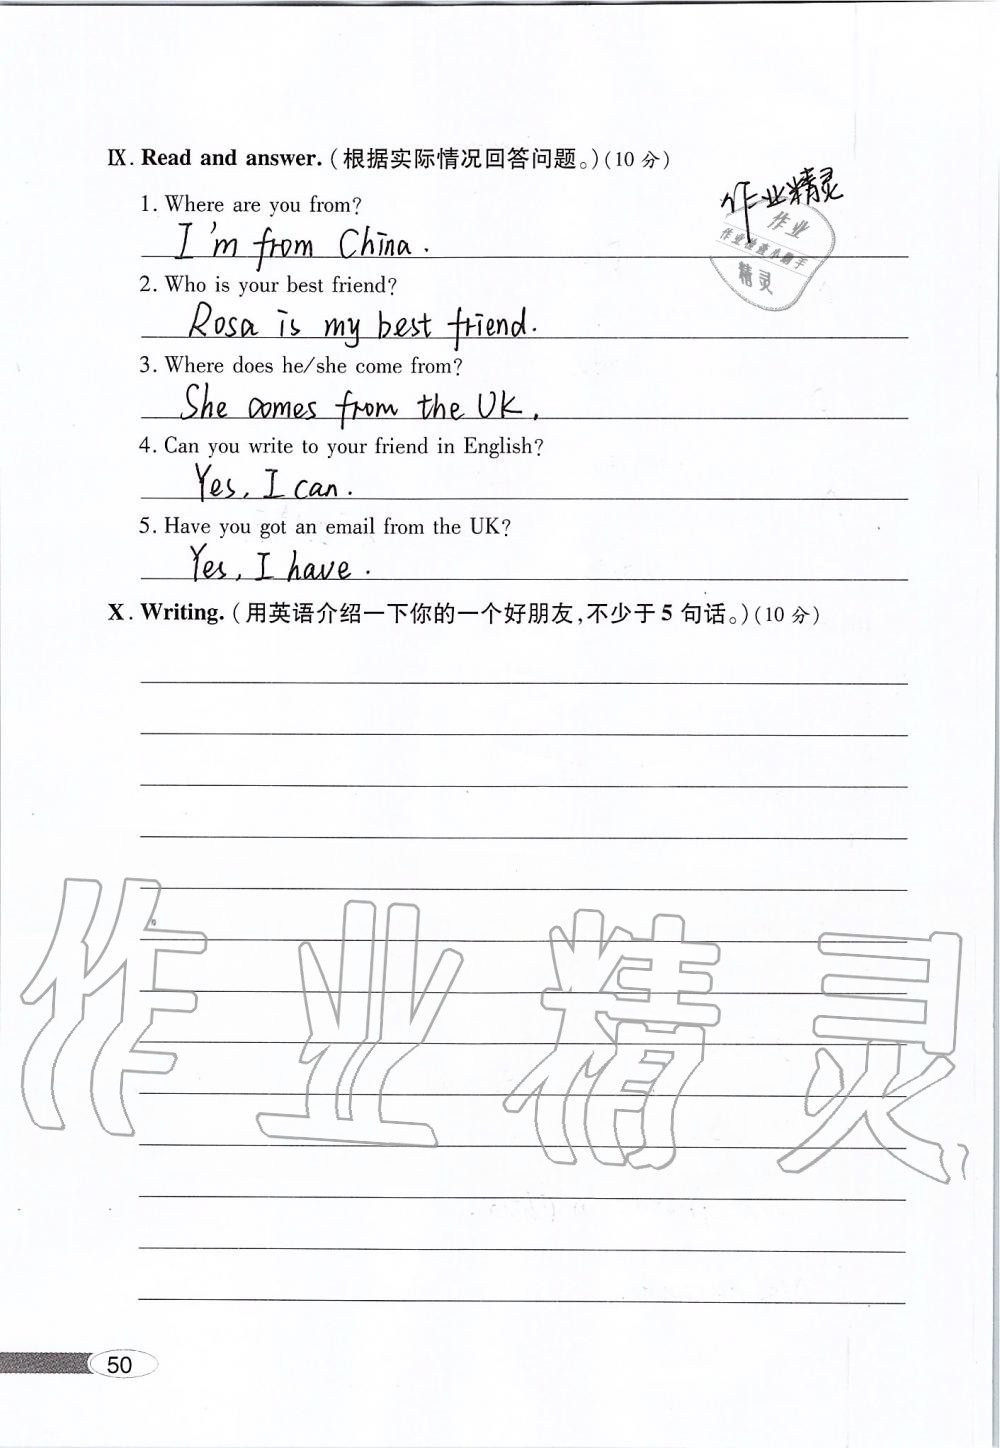 Ⅸ. Read and answer. (根据实际情况回答问题。)(10 分)
作业精灵
1. Where are you from?
作业
I'm from China.
作业检查小帮手
精灵
2. Who is your best friend?
Rosa is my best friend.
3. Where does he/she come from?
She comes from the UK.
4. Can you write to your friend in English?
Yes, I can.
5. Have you got an email from the UK?
Yes, I have.
Ⅹ. Writing. (用英语介绍一下你的一个好朋友,不少于 5 句话。)(10 分)
作业精灵
50